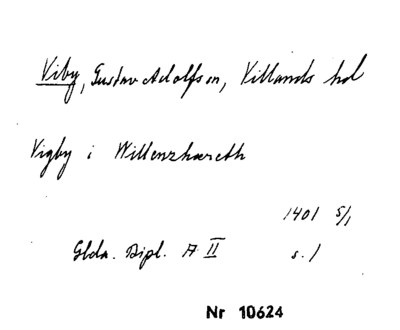 Viby, Gustav Adolfs sn, Villands hd
Vigby i Willenzhæreth
1401 5/1
Glda. Dipl. A II s. 1
Nr 10624